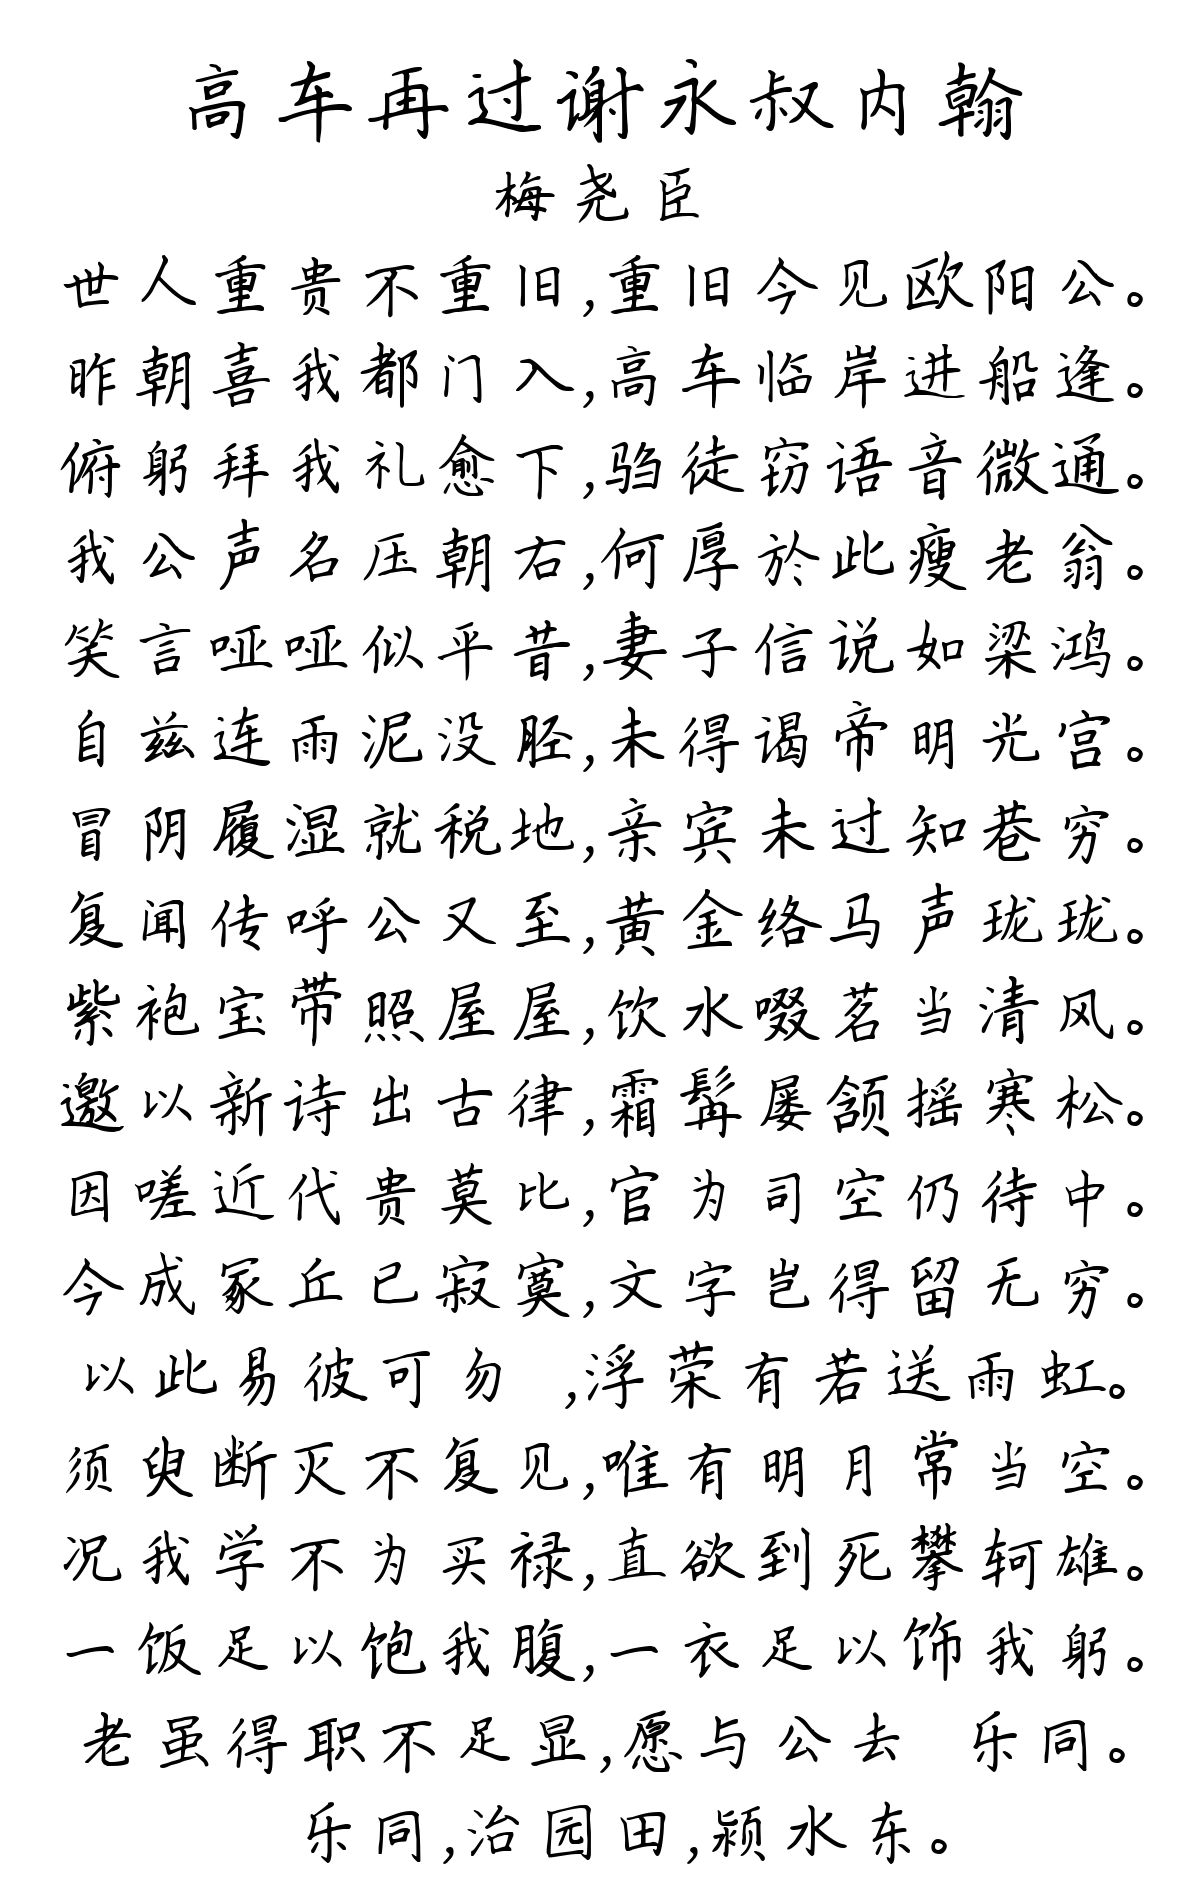 高车再过谢永叔内翰
梅尧臣
世人重贵不重旧,重旧今见欧阳公。
昨朝喜我都门入,高车临岸进船逢。
俯躬拜我礼愈下,驺徒窃语音微通。
我公声名压朝右,何厚於此瘦老翁。
笑言哑哑似平昔,妻子信说如梁鸿。
自兹连雨泥没胫,未得谒帝明光宫。
冒阴履湿就税地,亲宾未过知巷穷。
复闻传呼公又至,黄金络马声珑珑。
紫袍宝带照屋屋,饮水啜茗当清风。
邀以新诗出古律,霜髯屡颔摇寒松。
因嗟近代贵莫比,官为司空仍待中。
今成冢丘已寂寞,文字岂得留无穷。
以此易彼可勿 ,浮荣有若送雨虹。
须臾断灭不复见,唯有明月常当空。
况我学不为买禄,直欲到死攀轲雄。
一饭足以饱我腹,一衣足以饰我躬。
老虽得职不足显,愿与公去 乐同。
乐同,治园田,颍水东。